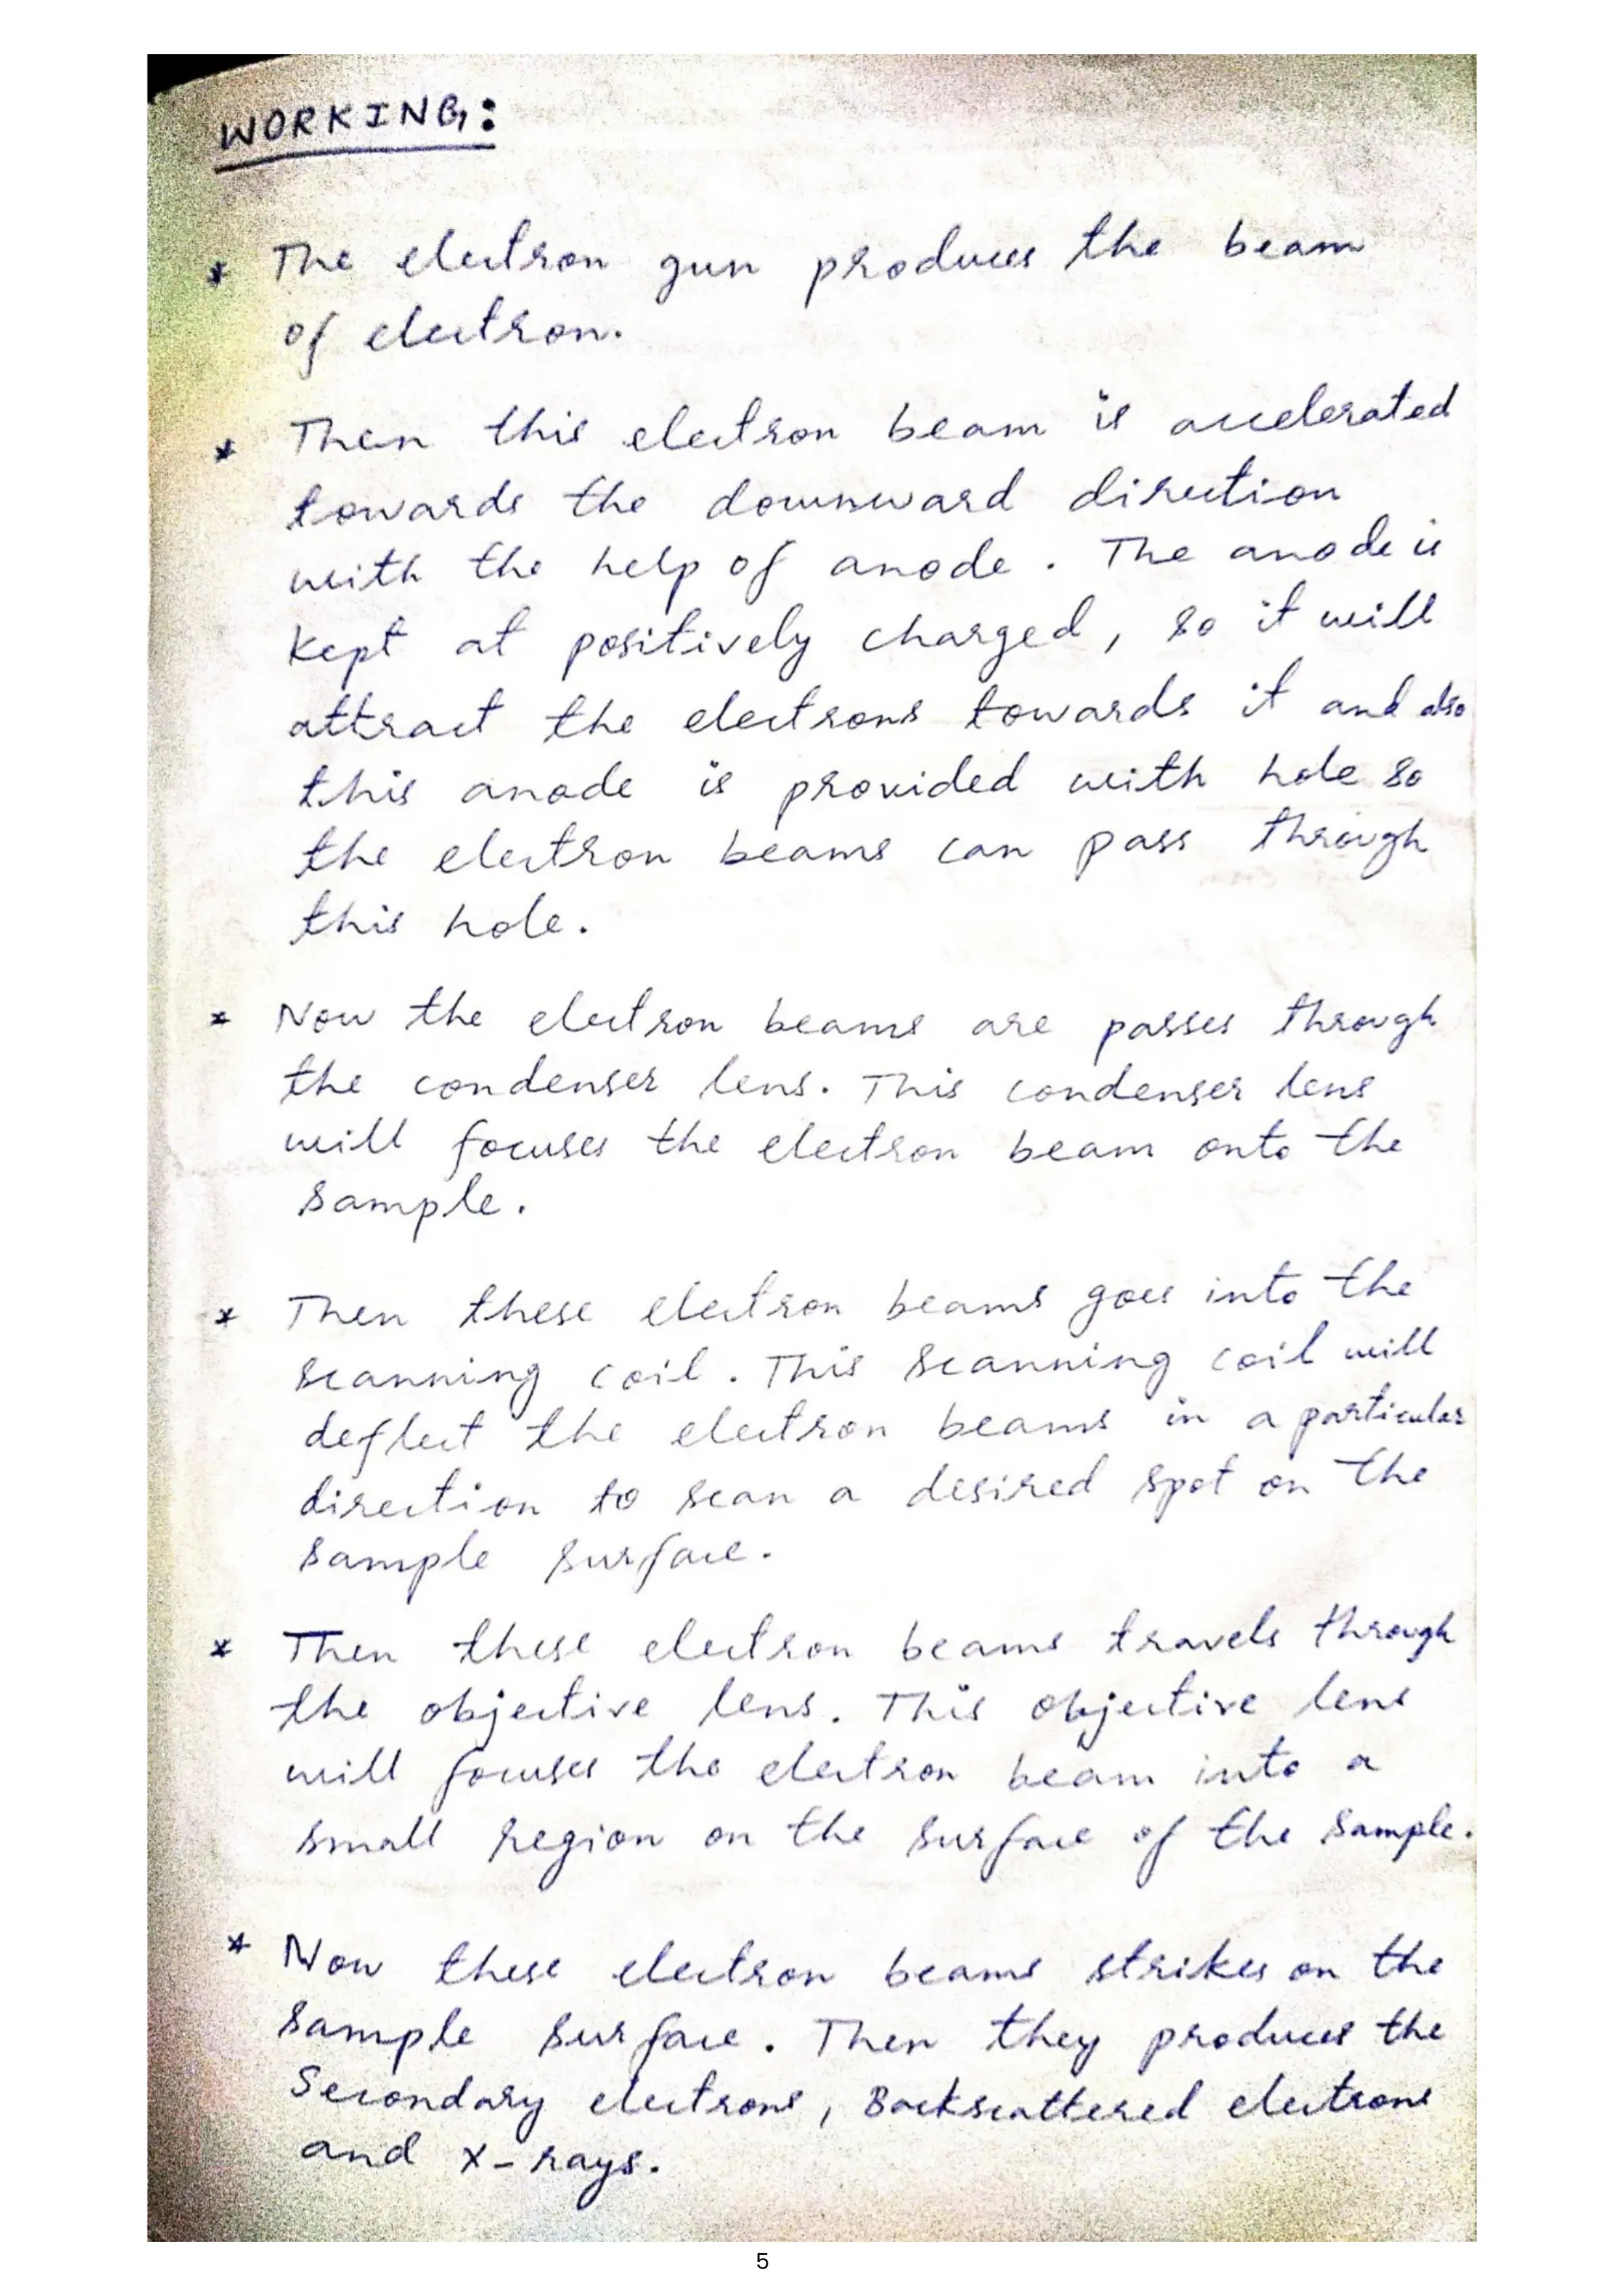 WORKING:
* The electron gun produces the beam
of electron.
* Then this electron beam is accelerated
towards the downward direction
with the help of anode. The anode is
kept at positively charged, so it will
attract the electrons towards it and also
this anode is provided with hole so
the electron beams can pass through
this hole.
* Now the electron beams are passes through
the condenser lens. This condenser lens
will focuses the electron beam onto the
sample.
* Then these electron beams goes into the
scanning coil. This scanning coil will
deflect the electron beams in a particular
direction to scan a desired spot on the
sample surface.
* Then these electron beams travels through
the objective lens. This objective lens
will focuses the electron beam into a
small region on the surface of the sample.
* Now these electron beams strikes on the
sample surface. Then they produces the
Secondary electrons, Backscattered electrons
and X-rays.
5